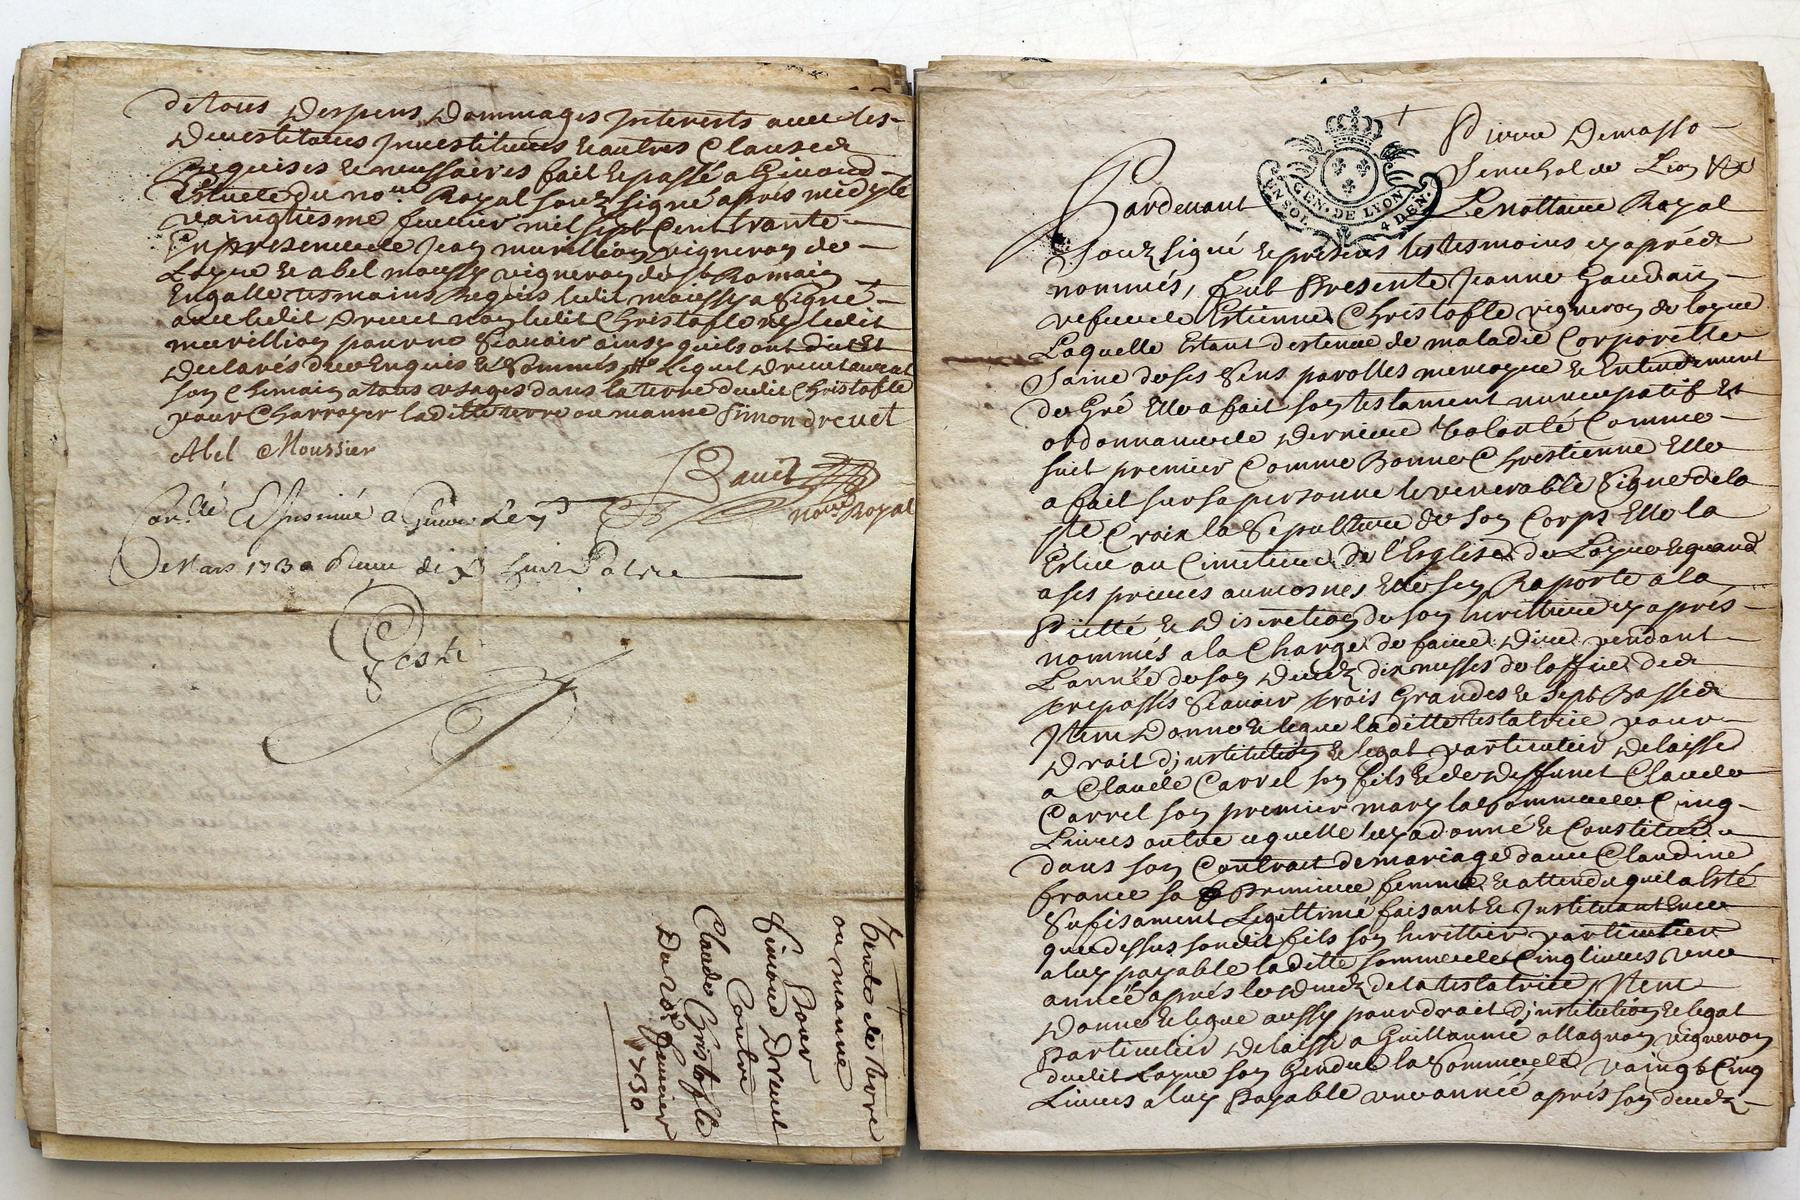 de tous Despens Dommages Interests avec les
Devestitures Investitures & autres Clauses
Requises & necessaires fait & passé a Givord
Estude du no.re Royal souzsigné apres midy le
vaingtiesme feuvier mil sept Cent trante
En presence de Jean murillion vigneron de
Loyre & abel moussy vigneron de st Romain
Engalle tesmoins Requis ledit moussy a signé
avec ledit Drevet non ledit Christofle ny ledit
murillion pour ne sçavoir ainsy quils ont dit et
Declarés de ce Enquis & sommés lequel Drevet aura
son Chemain a tous usages dans la terre dudit Christofle
pour Charroyer laditte terre ou manne Simon drevet
Abel Moussier
no.re Royal
Con.llé & Insinué a
De Mars 1730 Receu dix huit
Vente de terre
ou manne
Pour
Simond Drevet
Contre
Claude Cristofle
Du 20e fevrier
1730
GEN. DE LYON
4 DEN.
Pierre Demasso
Senechal de Lion &c
Pardevant Le nottaire Royal
souzsigné & presens les tesmoins cy aprés
nommés, fut Presente Jeanne Gaudain
vefue de Estienne Christofle vigneron de loyre
Laquelle Estant destenue de maladie Corporelle
saine de ses sens parolles memoyre & Entendement
de Gré Elle a fait son testament nuncupatif Et
ordonnance de Derniere Volonté Comme
suit premier Comme Bonne Chrestienne Elle
a fait sur sa personne le venerable signe de la
ste Croix la sepulture de son Corps Elle la
Eslue au Cimetiere de l'Esglise de Loyre & quand
a ses prieres aumosnes Elle sen Raporte a la
Pietté & Discretion de son herittier cy aprés
nommés a la Charge de faire Dire pendant
L'année de son decedz dix messes de l'office des
trepassés sçavoir trois Grandes & sept Basses
Item Donne & legue laditte testatrice pour
Droit d'institution & legat particulier delaisse
a Claude Carrel son fils & de deffunct Claude
Carrel son premier mary la somme de Cinq
Livres outre ce quelle luy a donné & Constitué
dans son Contract de mariage d'avec Claudine
france sa Premiere femme & attendu quil a Esté
sufisament Legittimé faisant & Instituant En ce
que dessus sondit fils son herittier particulier
a luy payable laditte somme de Cinq livres une
année aprés le Decedz de la testatrice, Item
Donne & legue aussy pour droit d'institution & legat
Particulier delaisse a Guillaume allagnon vigneron
dudit Loyre son Gendre la somme de vaingt Cinq
Livres a luy Payable une année aprés son decedz